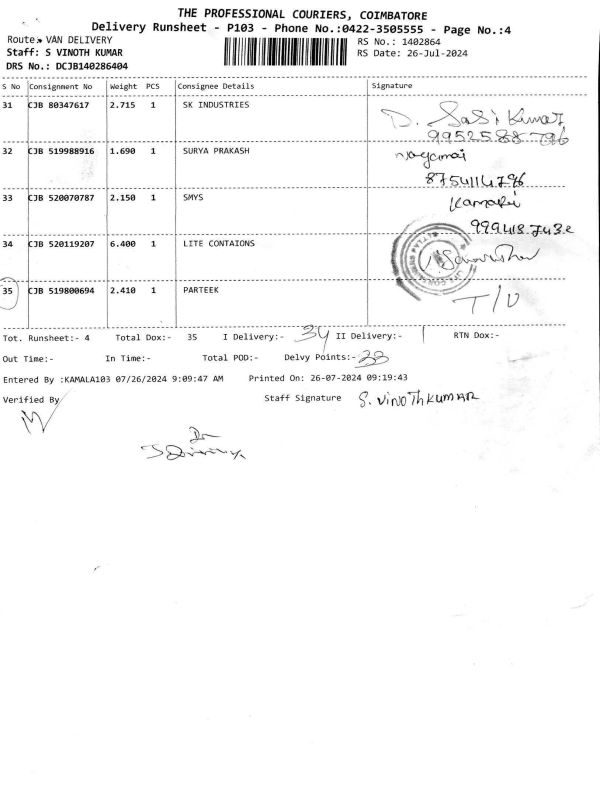 THE PROFESSIONAL COURIERS, COIMBATORE
Delivery Runsheet - P103 - Phone No.:0422-3505555 - Page No.:4
Route:- VAN DELIVERY
RS No.: 1402864
Staff: S VINOTH KUMAR
RS Date: 26-Jul-2024
DRS No.: DCJB140286404
S No Consignment No Weight PCS Consignee Details Signature
31 CJB 80347617 2.715 1 SK INDUSTRIES D. Sasi Kumar
9952588796
32 CJB 519988916 1.690 1 SURYA PRAKASH
8754114796
33 CJB 520070787 2.150 1 SMYS
34 CJB 520119207 6.400 1 LITE CONTAIONS
35 CJB 519800694 2.410 1 PARTEEK T/U
Tot. Runsheet:- 4 Total Dox:- 35 I Delivery:- 34 II Delivery:- 1 RTN Dox:-
Out Time:- In Time:- Total POD:- Delvy Points:- 33
Entered By :KAMALA103 07/26/2024 9:09:47 AM Printed On: 26-07-2024 09:19:43
Verified By Staff Signature S. VINOTHKUMAR